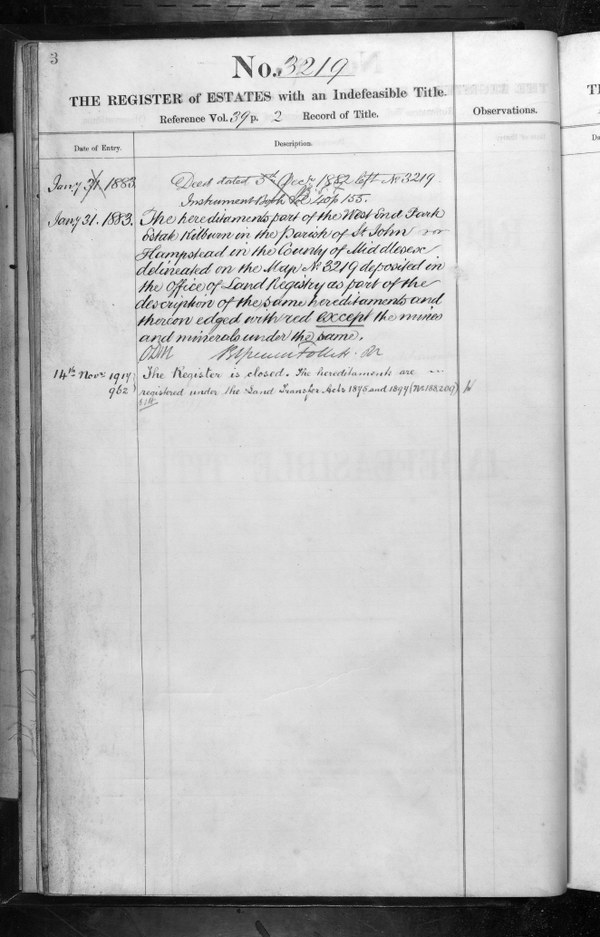 3
No. 3219
THE REGISTER of ESTATES with an Indefeasible Title.
Reference Vol. 39 p. 2 Record of Title.
Observations.
Date of Entry.
Description.
Jany 31. 1883.
Deed dated 5th Decr 1882 left No 3219
Instrument Book
155.
Jany 31. 1883.
The hereditaments part of the West End Park
Estate Kilburn in the Parish of St John
Hampstead in the County of Middlesex
delineated on the Map No 3219 deposited in
the Office of Land Registry as part of the
description of the same hereditaments and
thereon edged with red except the mines
and minerals under the same.
14th Novr 1917
The Register is closed. The hereditaments are
962
registered under the Land Transfer Acts 1875 and 1897